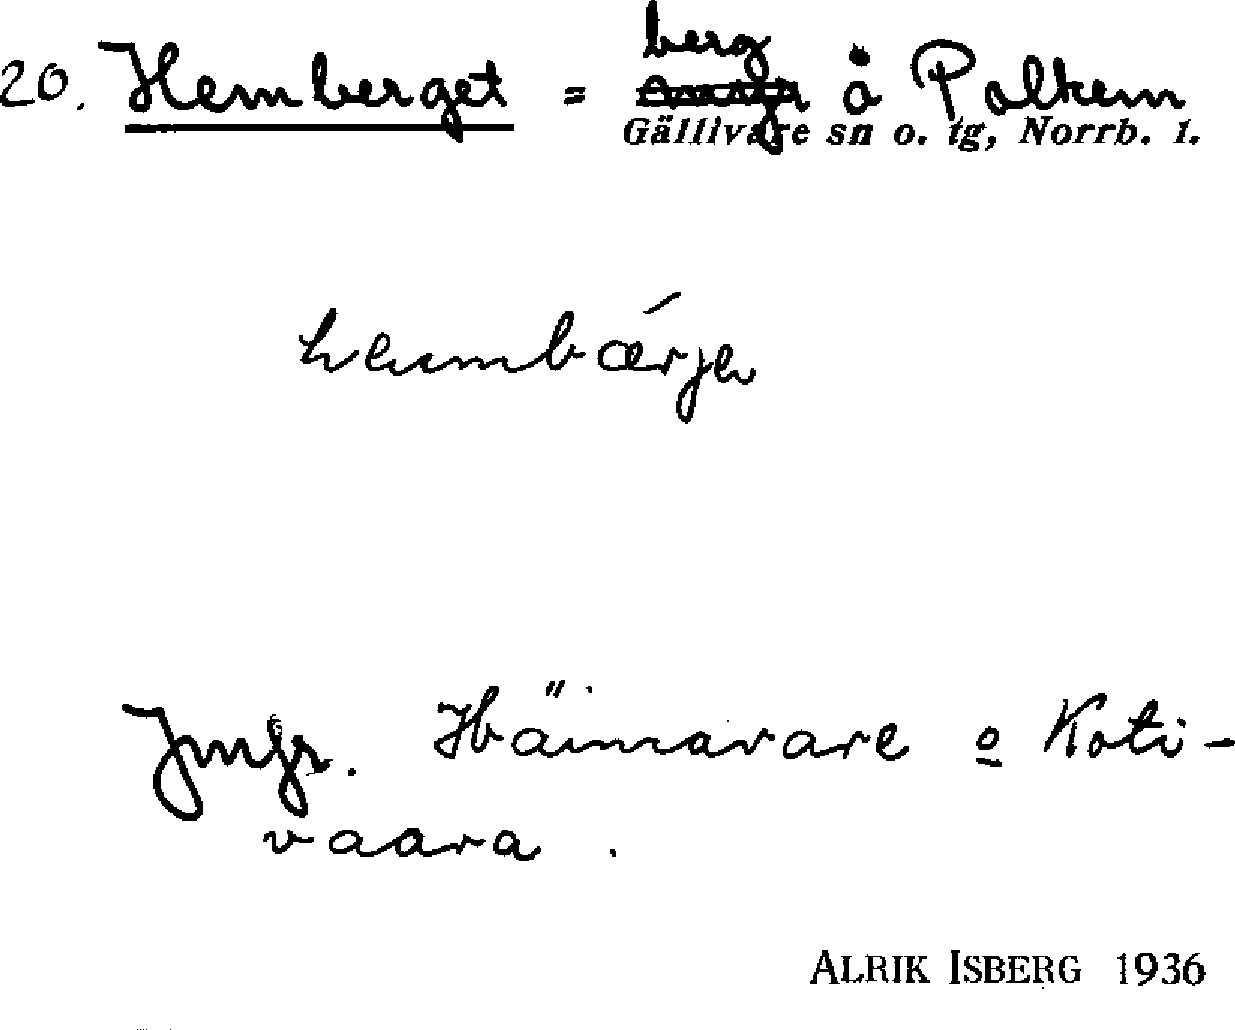 20. Hemberget = berg å Palkem
Gällivare sn o. tg, Norrb. l.
hembærje
Jmfr. Häimavare o Koti-
vaara.
ALRIK ISBERG 1936